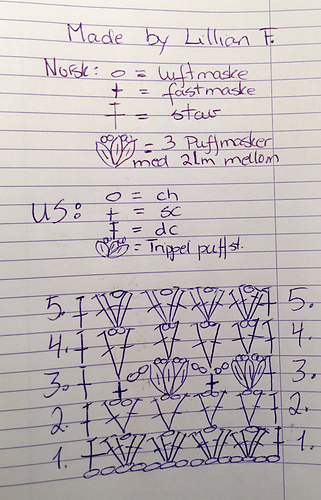 Made by Lillian F.
Norsk: o = luftmaske
+ = fastmaske
‡ = stav
= 3 Puffmasker
med 2lm mellom
US: o = ch
+ = sc
‡ = dc
= Trippel puffst.
5. 5.
4. 4.
3. 3.
2. 2.
1. 1.